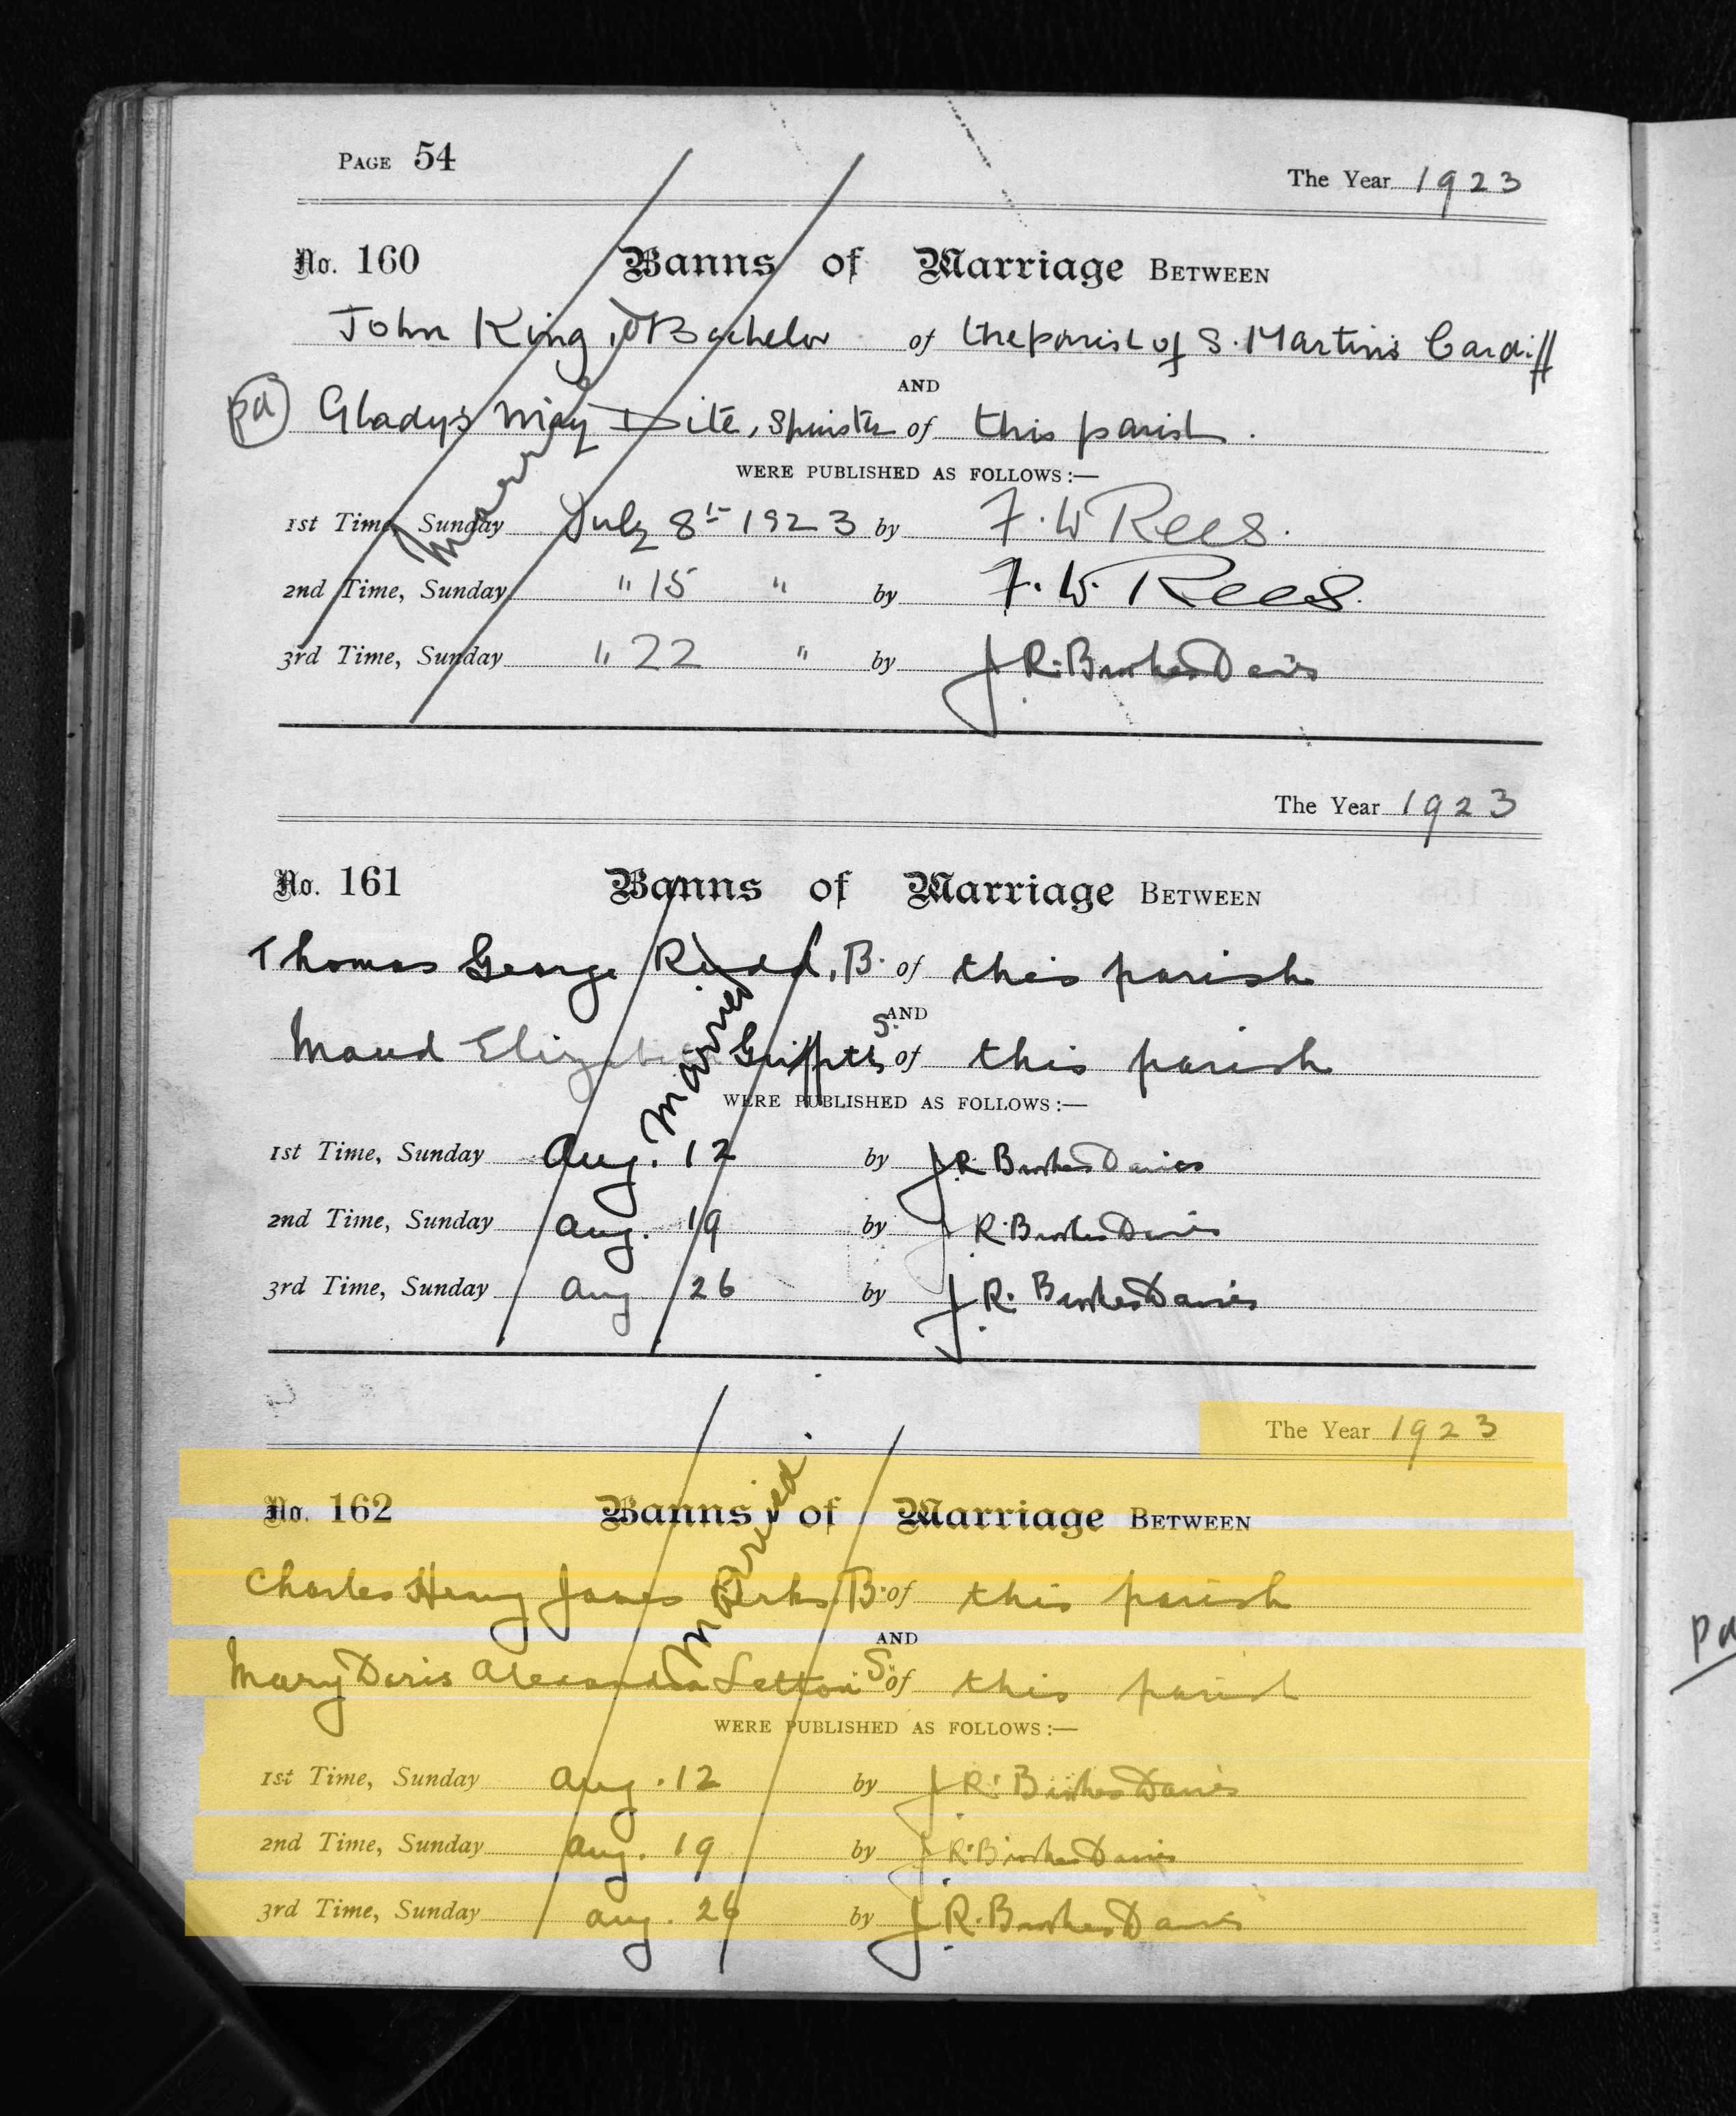 PAGE 54
The Year 1923
No. 160 Banns of Marriage BETWEEN
John King, Bachelor of the parish of S. Martin's Cardiff
AND
pd Gladys May Dite, Spinster of this parish.
WERE PUBLISHED AS FOLLOWS:—
1st Time, Sunday July 8th 1923 by F. W Rees.
2nd Time, Sunday " 15 " by F. W. Rees.
3rd Time, Sunday " 22 " by J R. Brookes Davis
Married
The Year 1923
No. 161 Banns of Marriage BETWEEN
Thomas George Rudd, B. of this parish
AND
Maud Elizabeth Griffiths S. of this parish
WERE PUBLISHED AS FOLLOWS:—
1st Time, Sunday Aug. 12 by J R Brookes Davies
2nd Time, Sunday Aug. 19 by J R. Brookes Davies
3rd Time, Sunday Aug 26 by J R. Brookes Davies
Married
The Year 1923
No. 162 Banns of Marriage BETWEEN
Charles Henry James Perks B. of this parish
AND
Mary Doris Alexandra Letton S. of this parish
WERE PUBLISHED AS FOLLOWS:—
1st Time, Sunday Aug. 12 by J R. Brookes Davies
2nd Time, Sunday Aug. 19 by J R. Brookes Davies
3rd Time, Sunday Aug. 26 by J R. Brookes Davies
Married